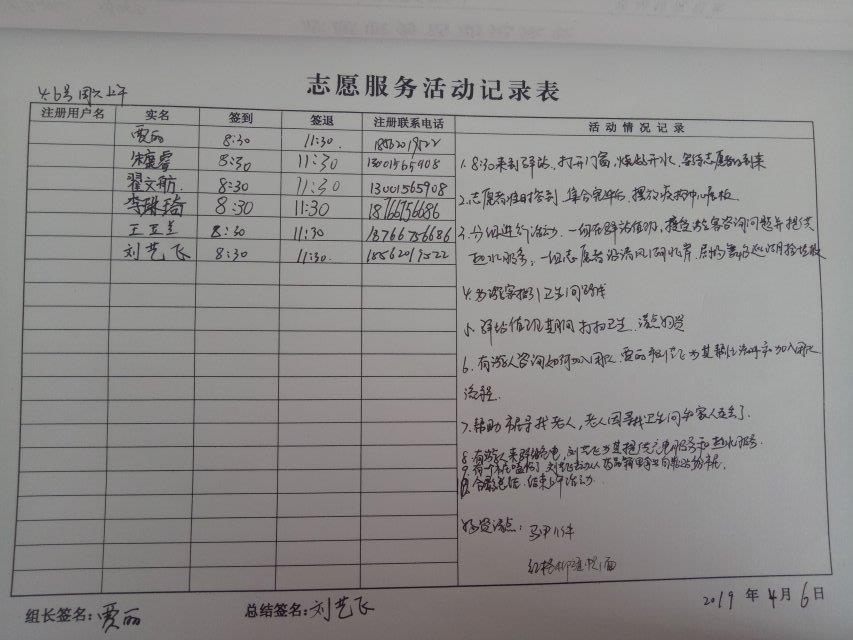 志愿服务活动记录表
4.6号周六上午
注册用户名 实名 签到 签退 注册联系电话 活动情况记录
贾丽 8:30 11:30. 18562019522
8:30 11:30 13001565908
翟文航. 8:30 11:30 13001565908
李琳琦 8:30 11:30 18766756686
王卫兰 8:30 11:30 18766756686
刘艺飞 8:30 11:30. 18562019522
1. 8:30来到驿站,打开门窗,烧好开水,等待志愿者的到来
2.志愿者准时签到,集合完毕后,
3.分组进行活动,一组在驿站值功,接受游客咨询问题并提供
热水服务,一组志愿者沿清风
4.为游客指引卫生间路线
5.驿站值班期间打扫卫生,清点物资
6.有游人咨询如何加入团队,贾丽和 为其 加入团队
流程.
7.帮助市民寻找老人,老人因寻找卫生间与家人走失了.
8.有游人来驿站充电,刘艺飞为其提供充电服务和热水服务.
9.有
10.合影总结.结束上午活动.
物资清点:马甲 件
红
组长签名:贾丽
总结签名:刘艺飞
2019 年 4 月 6 日